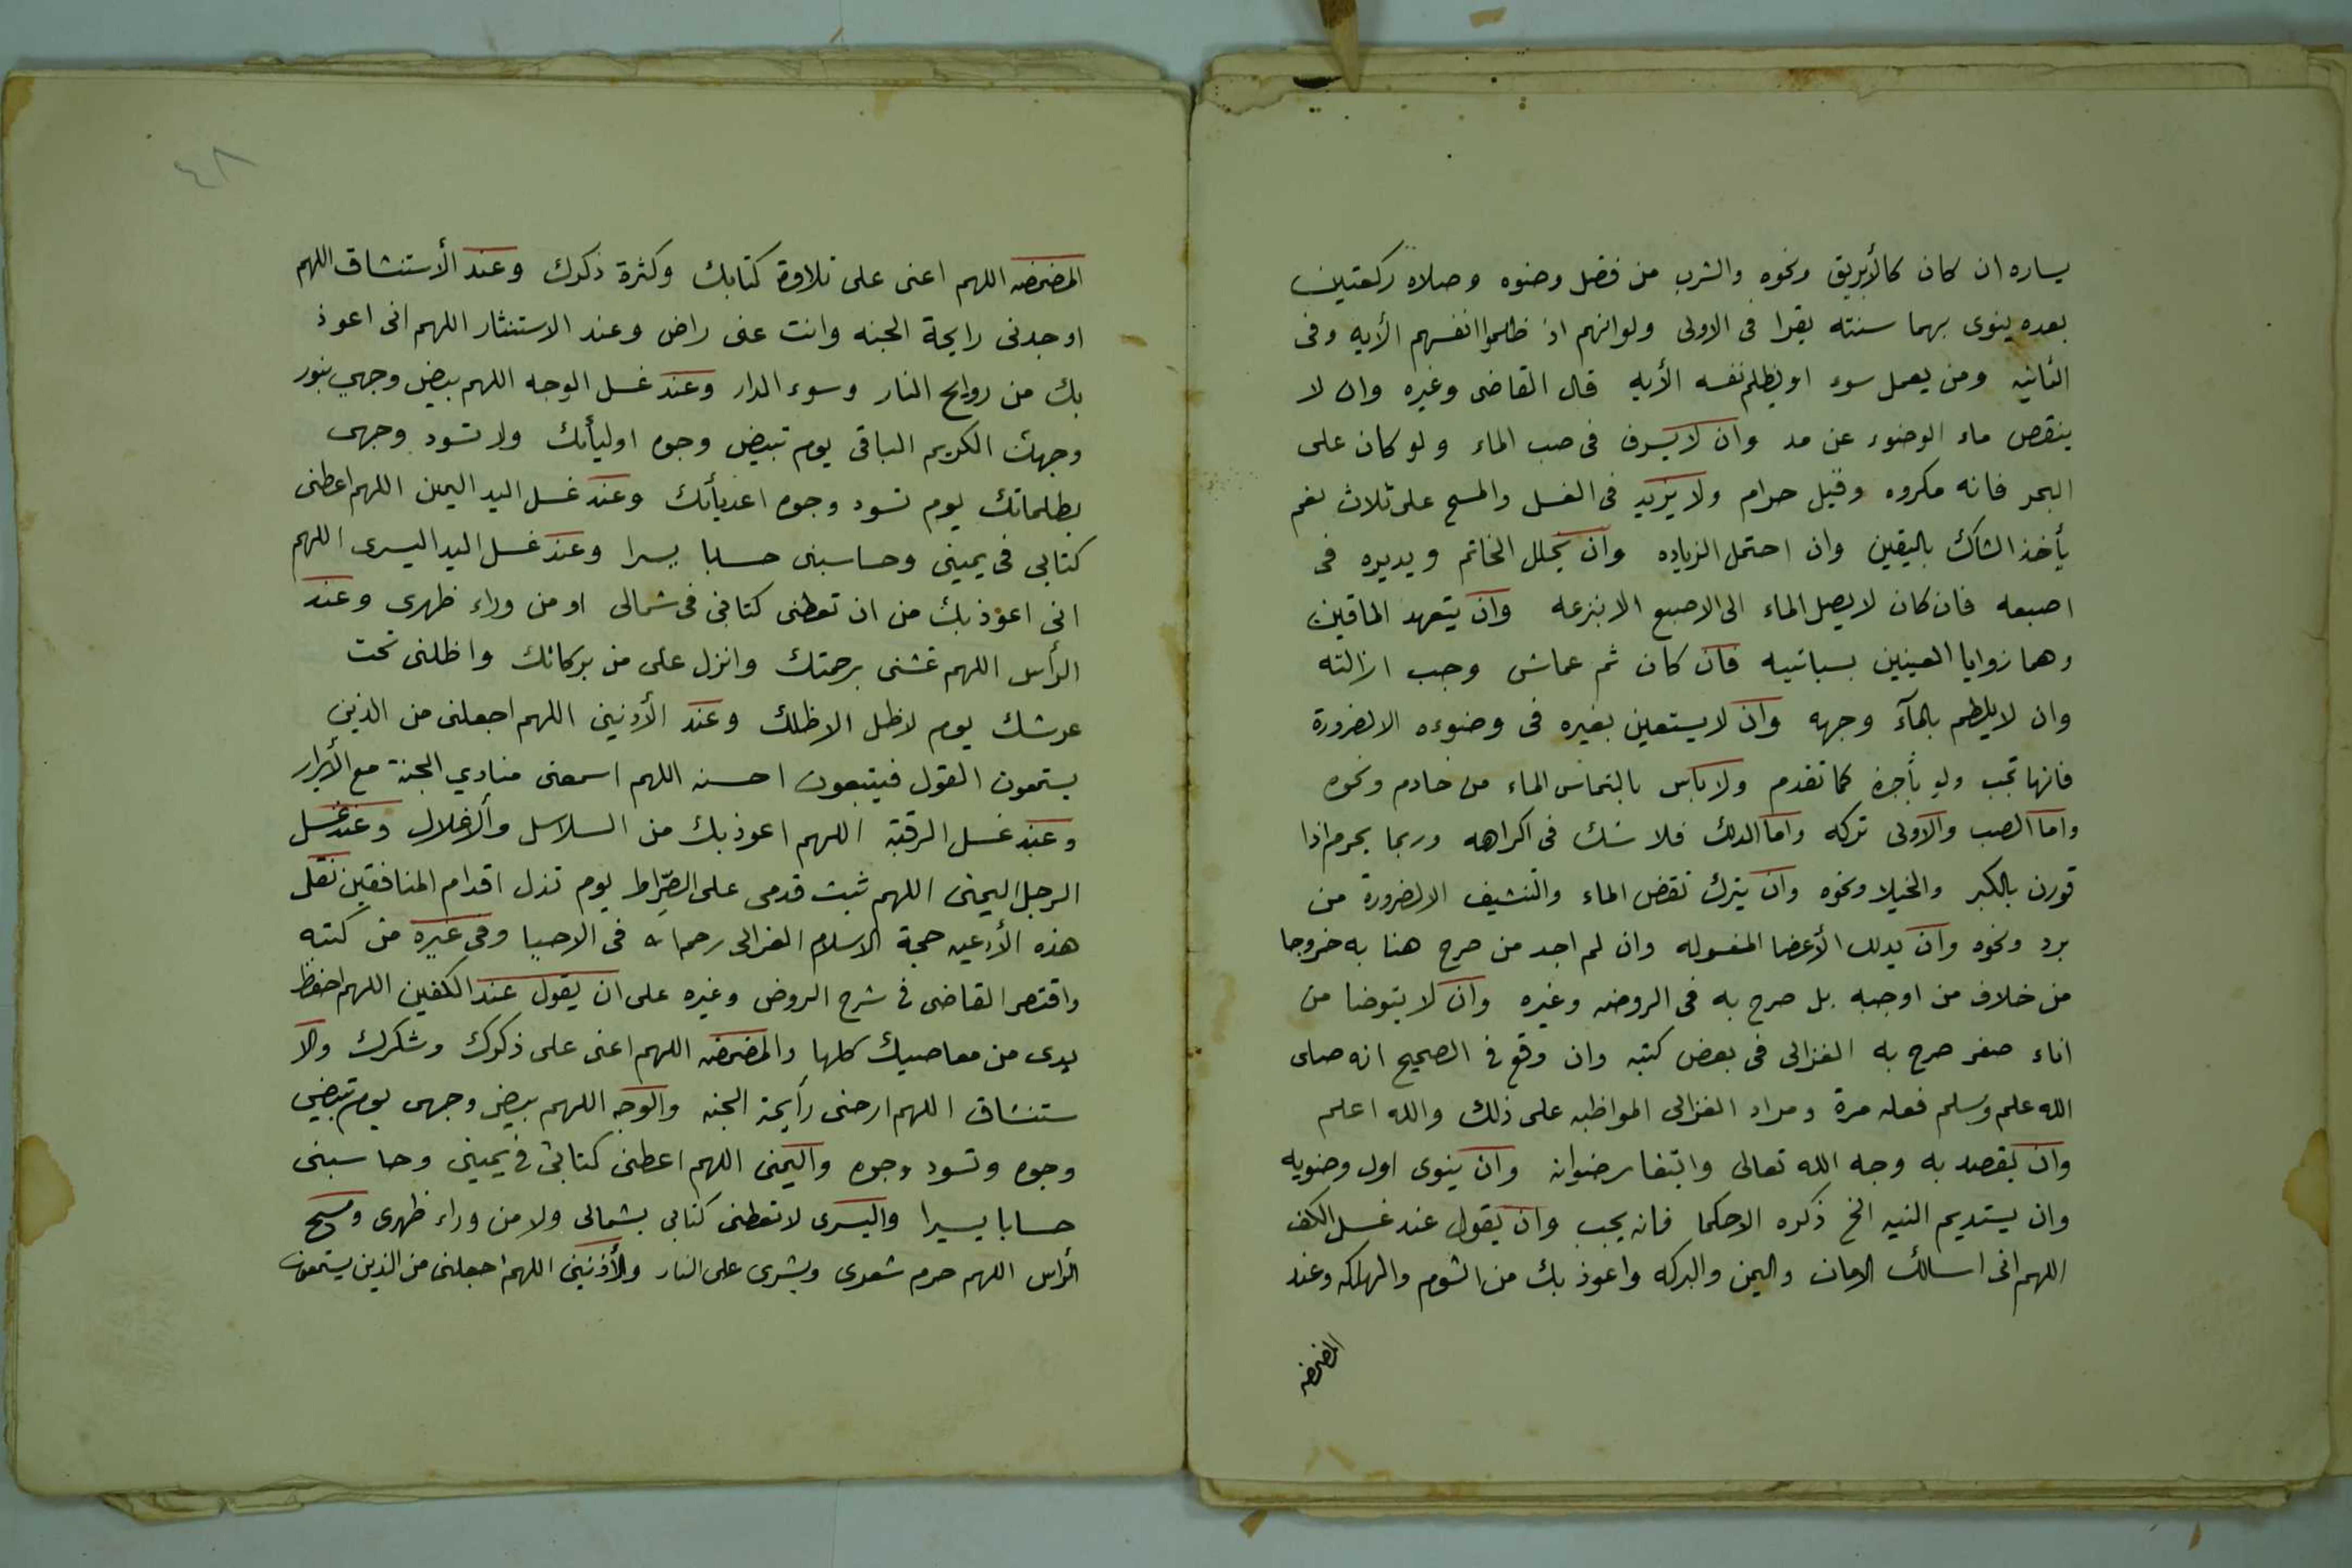 يساره ان كان كالأبريق ونحوه والشرب من فضل وضوه وصلاه ركعتين
بعده ينوى بهما سنته يقرا فى الاولى ولوانهم اذ ظلموا انفسهم الأيه وفى
الثانيه ومن يعمل سوء او يظلم نفسه الأيه قال القاضى وغيره وان لا
ينقص ماء الوضوء عن مد وان لا يسرف فى صب الماء ولو كان على
البحر فانه مكروه وقيل حرام ولا يزيد فى الغسل والمسح على ثلاث نعم
يأخذ الشاك باليقين وان احتمل الزياده وان يخلل الخاتم ويديره فى
اصبعه فان كان لا يصل الماء الى الاصبع الا بنزعه وان يتعهد الماقين
وهما زوايا العينين بسبابتيه فان كان ثم عماش وجب ازالته
وان لا يلطم بالمآء وجهه وان لا يستعين بغيره فى وضوءه الا لضرورة
فانها تجب ولو بأجرة كما تقدم ولا بأس بالتماس الماء من خادم ونحوه
واما الصب والاولى تركه واما الدلك فلا شك فى اكراهه وربما يحرم اذا
قورن بالكبر والخيلا ونحوه وان يترك نقض الماء والتنشيف الا لضرورة من
برد ونحوه وان يدلك الأعضا المغسوله وان لم اجد من صرح هنا به خروجا
من خلاف من اوجبه بل صرح به فى الروضه وغيره وان لا يتوضا من
اناء صفر صرح به الغزالى فى بعض كتبه وان وقع فى الصحيح انه صلى
الله علم وسلم فعله مرة ومراد الغزالى المواظبه على ذلك والله اعلم
وان يقصد به وجه الله تعالى وابتغا رضوانه وان ينوى اول وضويه
وان يستديم النيه الخ ذكره الاحكما فانه يجب وان يقول عند غسل الكف
اللهم انى اسالك الامان واليمن والبركه واعوذ بك من الشوم والهلكه وعند
المضمضه
٤٨
المضمضه اللهم اعنى على تلاوة كتابك وكثرة ذكرك وعند الأستنشاق اللهم
اوجدنى رايحة الجنه وانت عنى راض وعند الاستنثار اللهم انى اعوذ
بك من روايح النار وسوء الدار وعند غسل الوجه اللهم بيض وجهي بنور
وجهك الكريم الباقى يوم تبيض وجوه اوليأئك ولا تسود وجهى
بظلماتك يوم تسود وجوه اعديأئك وعند غسل اليد اليمين اللهم اعطنى
كتابى فى يمينى وحاسبنى حسابا يسرا وعند غسل اليد اليسرى اللهم
انى اعوذ بك من ان تعطنى كتابى فى شمالى او من وراء ظهرى وعند
الرأس اللهم غشنى برحمتك وانزل على من بركاتك واظلنى تحت
عرشك يوم لا ظل الا ظلك وعند الأذنين اللهم اجعلنى من الذين
يستمعون القول فيتبعون احسنه اللهم اسمعنى منادي الجنة مع الأبرار
وعند غسل الرقبة اللهم اعوذ بك من السلاسل والأغلال وعند غسل
الرجل اليمنى اللهم ثبت قدمى على الصِّراط يوم تذل اقدام المنافقين نقل
هذه الأدعيه حجة الاسلام الغزالى رحمه الله فى الاحيا وفى غيره من كتبه
واقتصر القاضى فى شرح الروض وغيره على ان يقول عند الكفين اللهم احفظ
يدى من معاصيك كلها والمضمضه اللهم اعنى على ذكرك وشكرك والا
ستنشاق اللهم ارحنى رأيحة الجنه والوجه اللهم بيض وجهى يوم تبيض
وجوه وتسود وجوه واليمنى اللهم اعطنى كتابى فى يمينى وحاسبنى
حسابا يسيرا واليسرى لا تعطنى كتابى بشمالى ولا من وراء ظهرى ومسح
الراس اللهم حرم شعرى وبشرى على النار والأذنين اللهم اجعلنى من الذين يستمعون